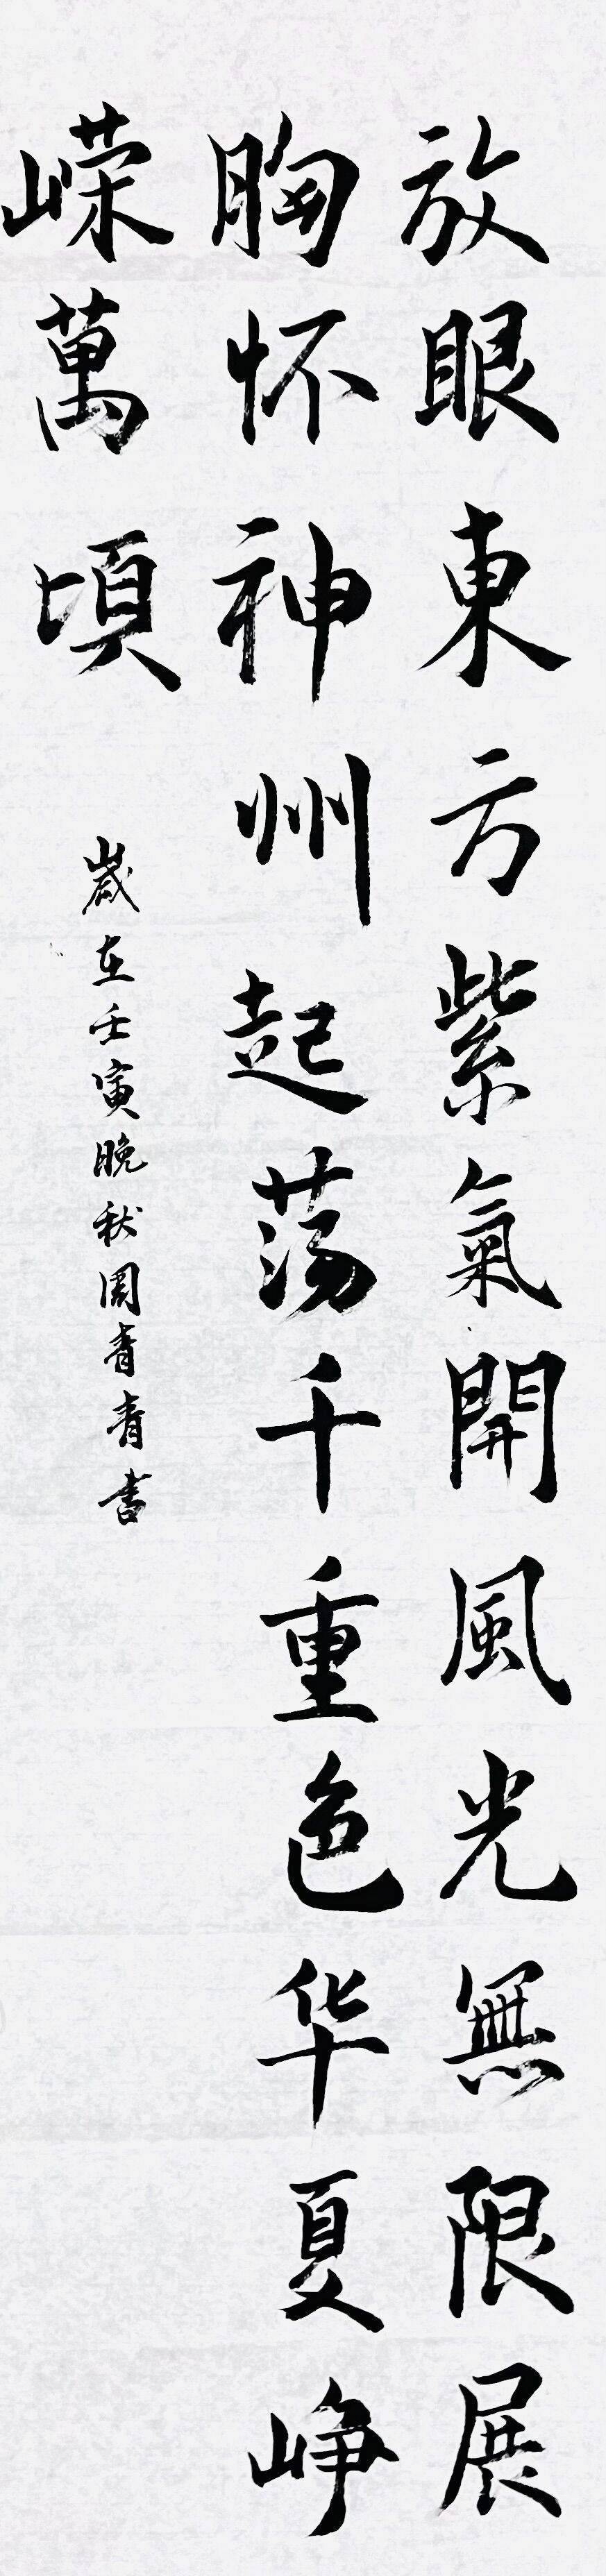 放眼東方紫氣開風光無限展
胸怀神州起荡千重色华夏峥
嵘萬頃
歲在壬寅晚秋周青青書